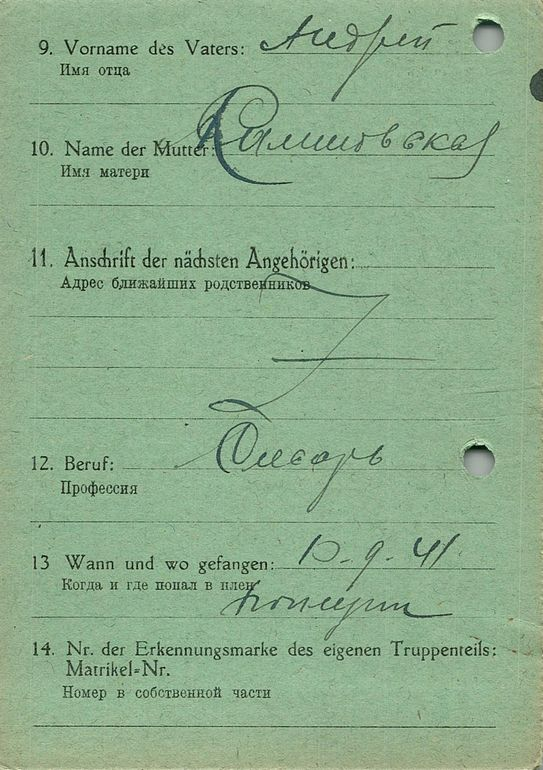 9. Vorname des Vaters: Андрей
Имя отца
10. Name der Mutter:
Имя матери
11. Anschrift der nächsten Angehörigen:
Адрес ближайших родственников
12. Beruf: Слесарь
Профессия
13 Wann und wo gefangen: 10-9-41
Когда и где попал в плен
14. Nr. der Erkennungsmarke des eigenen Truppenteils:
Matrikel-Nr.
Номер в собственной части